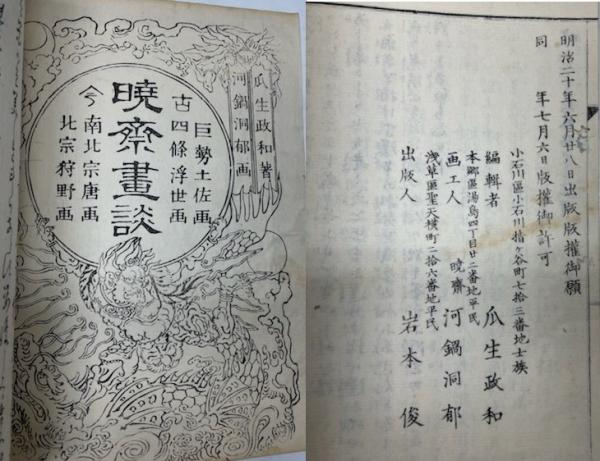 瓜生政和著
河鍋洞郁画
巨勢土佐画
古四條浮世画
曉齋畫談
今南北宗唐画
北宗狩野画
明治二十年六月廿八日出版版權御願
同年七月六日版權御許可
小石川區小石川指ヶ谷町七拾三番地士族
編輯者 瓜生政和
本郷區湯島四丁目廿二番地平民
画工人 曉齋 河鍋洞郁
浅草區聖天横町二拾六番地平民
出版人 岩本俊